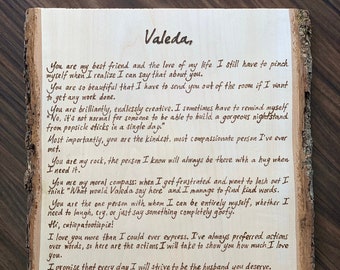 Valeda,
You are my best friend and the love of my life. I still have to pinch
myself when I realize I can say that about you.
You are so beautiful that I have to send you out of the room if I want
to get any work done.
You are brilliantly, endlessly creative. I sometimes have to remind myself
"No, it's not normal for someone to be able to build a gorgeous nightstand
from popsicle sticks in a single day."
Most importantly, you are the kindest, most compassionate person I've ever
met.
You are my rock, the person I know will always be there with a hug when
I need it.
You are my moral compass: when I get frustrated and want to lash out I
think "What would Valeda say here" and I manage to find kind words.
You are the one person with whom I can be entirely myself, whether I
need to laugh, cry, or just say something completely goofy.
Hi, cutiepatootiepie!
I love you more than I could ever express. I've always preferred actions
over words, so here are the actions I will take to show you how much I love
you.
I promise that every day I will strive to be the husband you deserve.